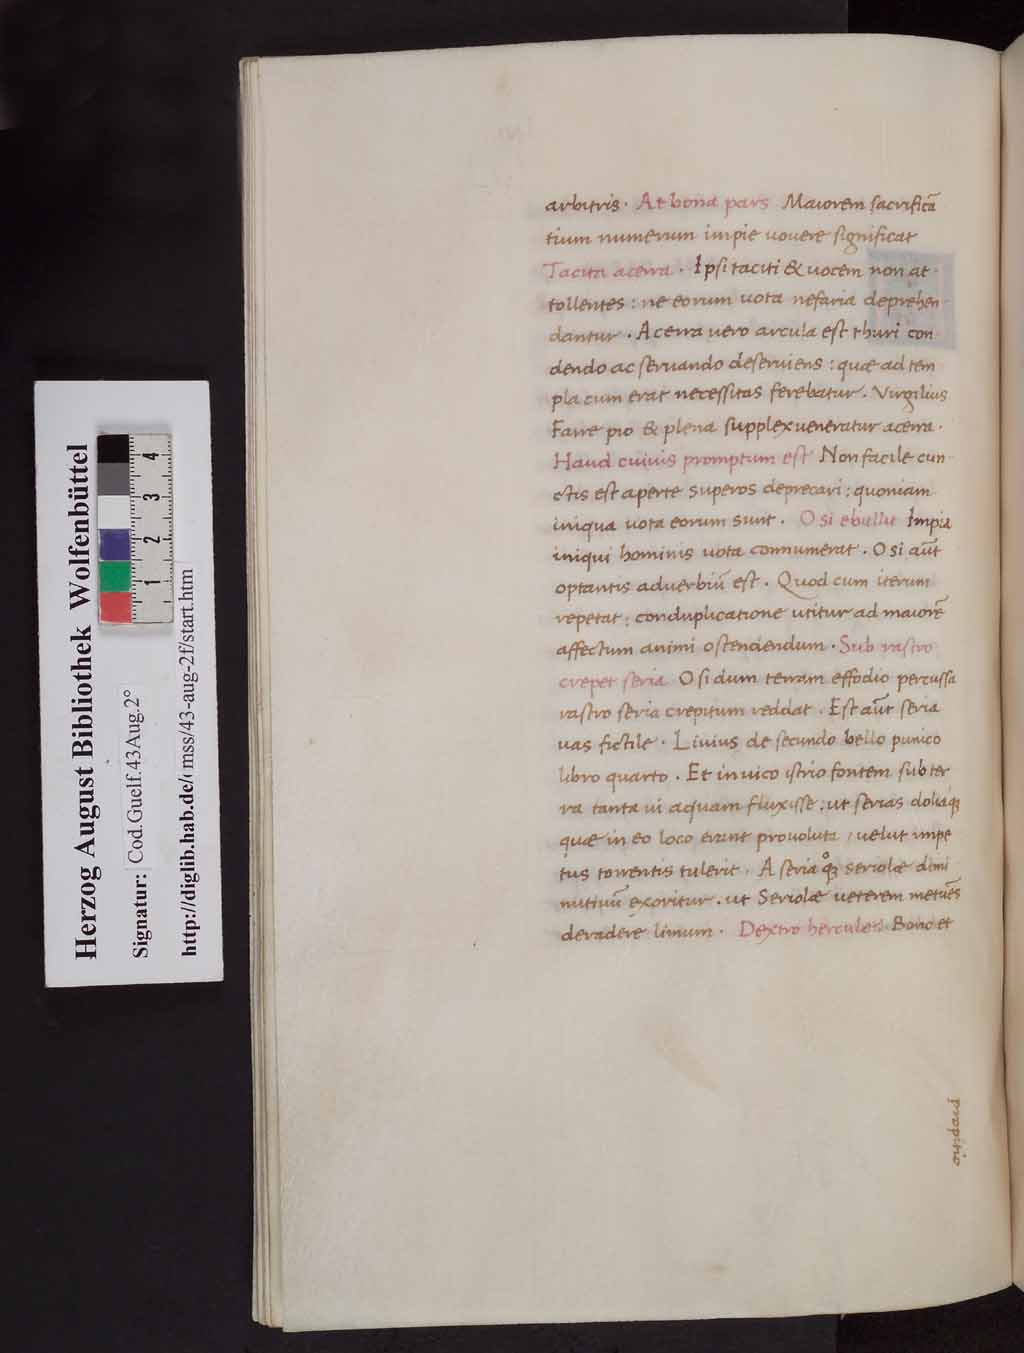 arbitris · At bona pars Maiorem sacrificā
tium numerum impie uouere significat
Tacita acerra · Ipsi taciti & uocem non at-
tollentes : ne eorum uota nefaria deprehen-
dantur · Acerra uero arcula est thuri con
dendo ac seruando deseruiens : quæ ad tem
pla cum erat necessitas ferebatur . Virgilius
Farre pio & plena supplex ueneratur acerra .
Haud cuiuis promptum est Non facile cun-
ctis est aperte superos deprecari : quoniam
iniqua uota eorum sunt . O si ebullit Impia
iniqui hominis uota connumerat . O si aūt
optantis aduerbiū est . Quod cum iterum
repetat : conduplicatione utitur ad maiorē
affectum animi ostendendum . Sub rastro
crepet seria O si dum terram effodio percussa
rastro seria crepitum reddat . Est aūt seria
uas fictile . Liuius de secundo bello punico
libro quarto . Et in uico istrio fontem sub ter
ra tanta ui aquam fluxisse : ut serias doliaq;
quæ in eo loco erant prouoluta , uelut impe
tus torrentis tulerit . A seria qͦq; seriolæ dimi
nutiuū exoritur . ut Seriolæ ueterem metuēs
deradere limum . Dextro hercules . Bono et
propitio
Herzog August Bibliothek Wolfenbüttel
Signatur: Cod.Guelf.43Aug.2°
http://diglib.hab.de/ mss/43-aug-2f/start.htm
1 2 3 4